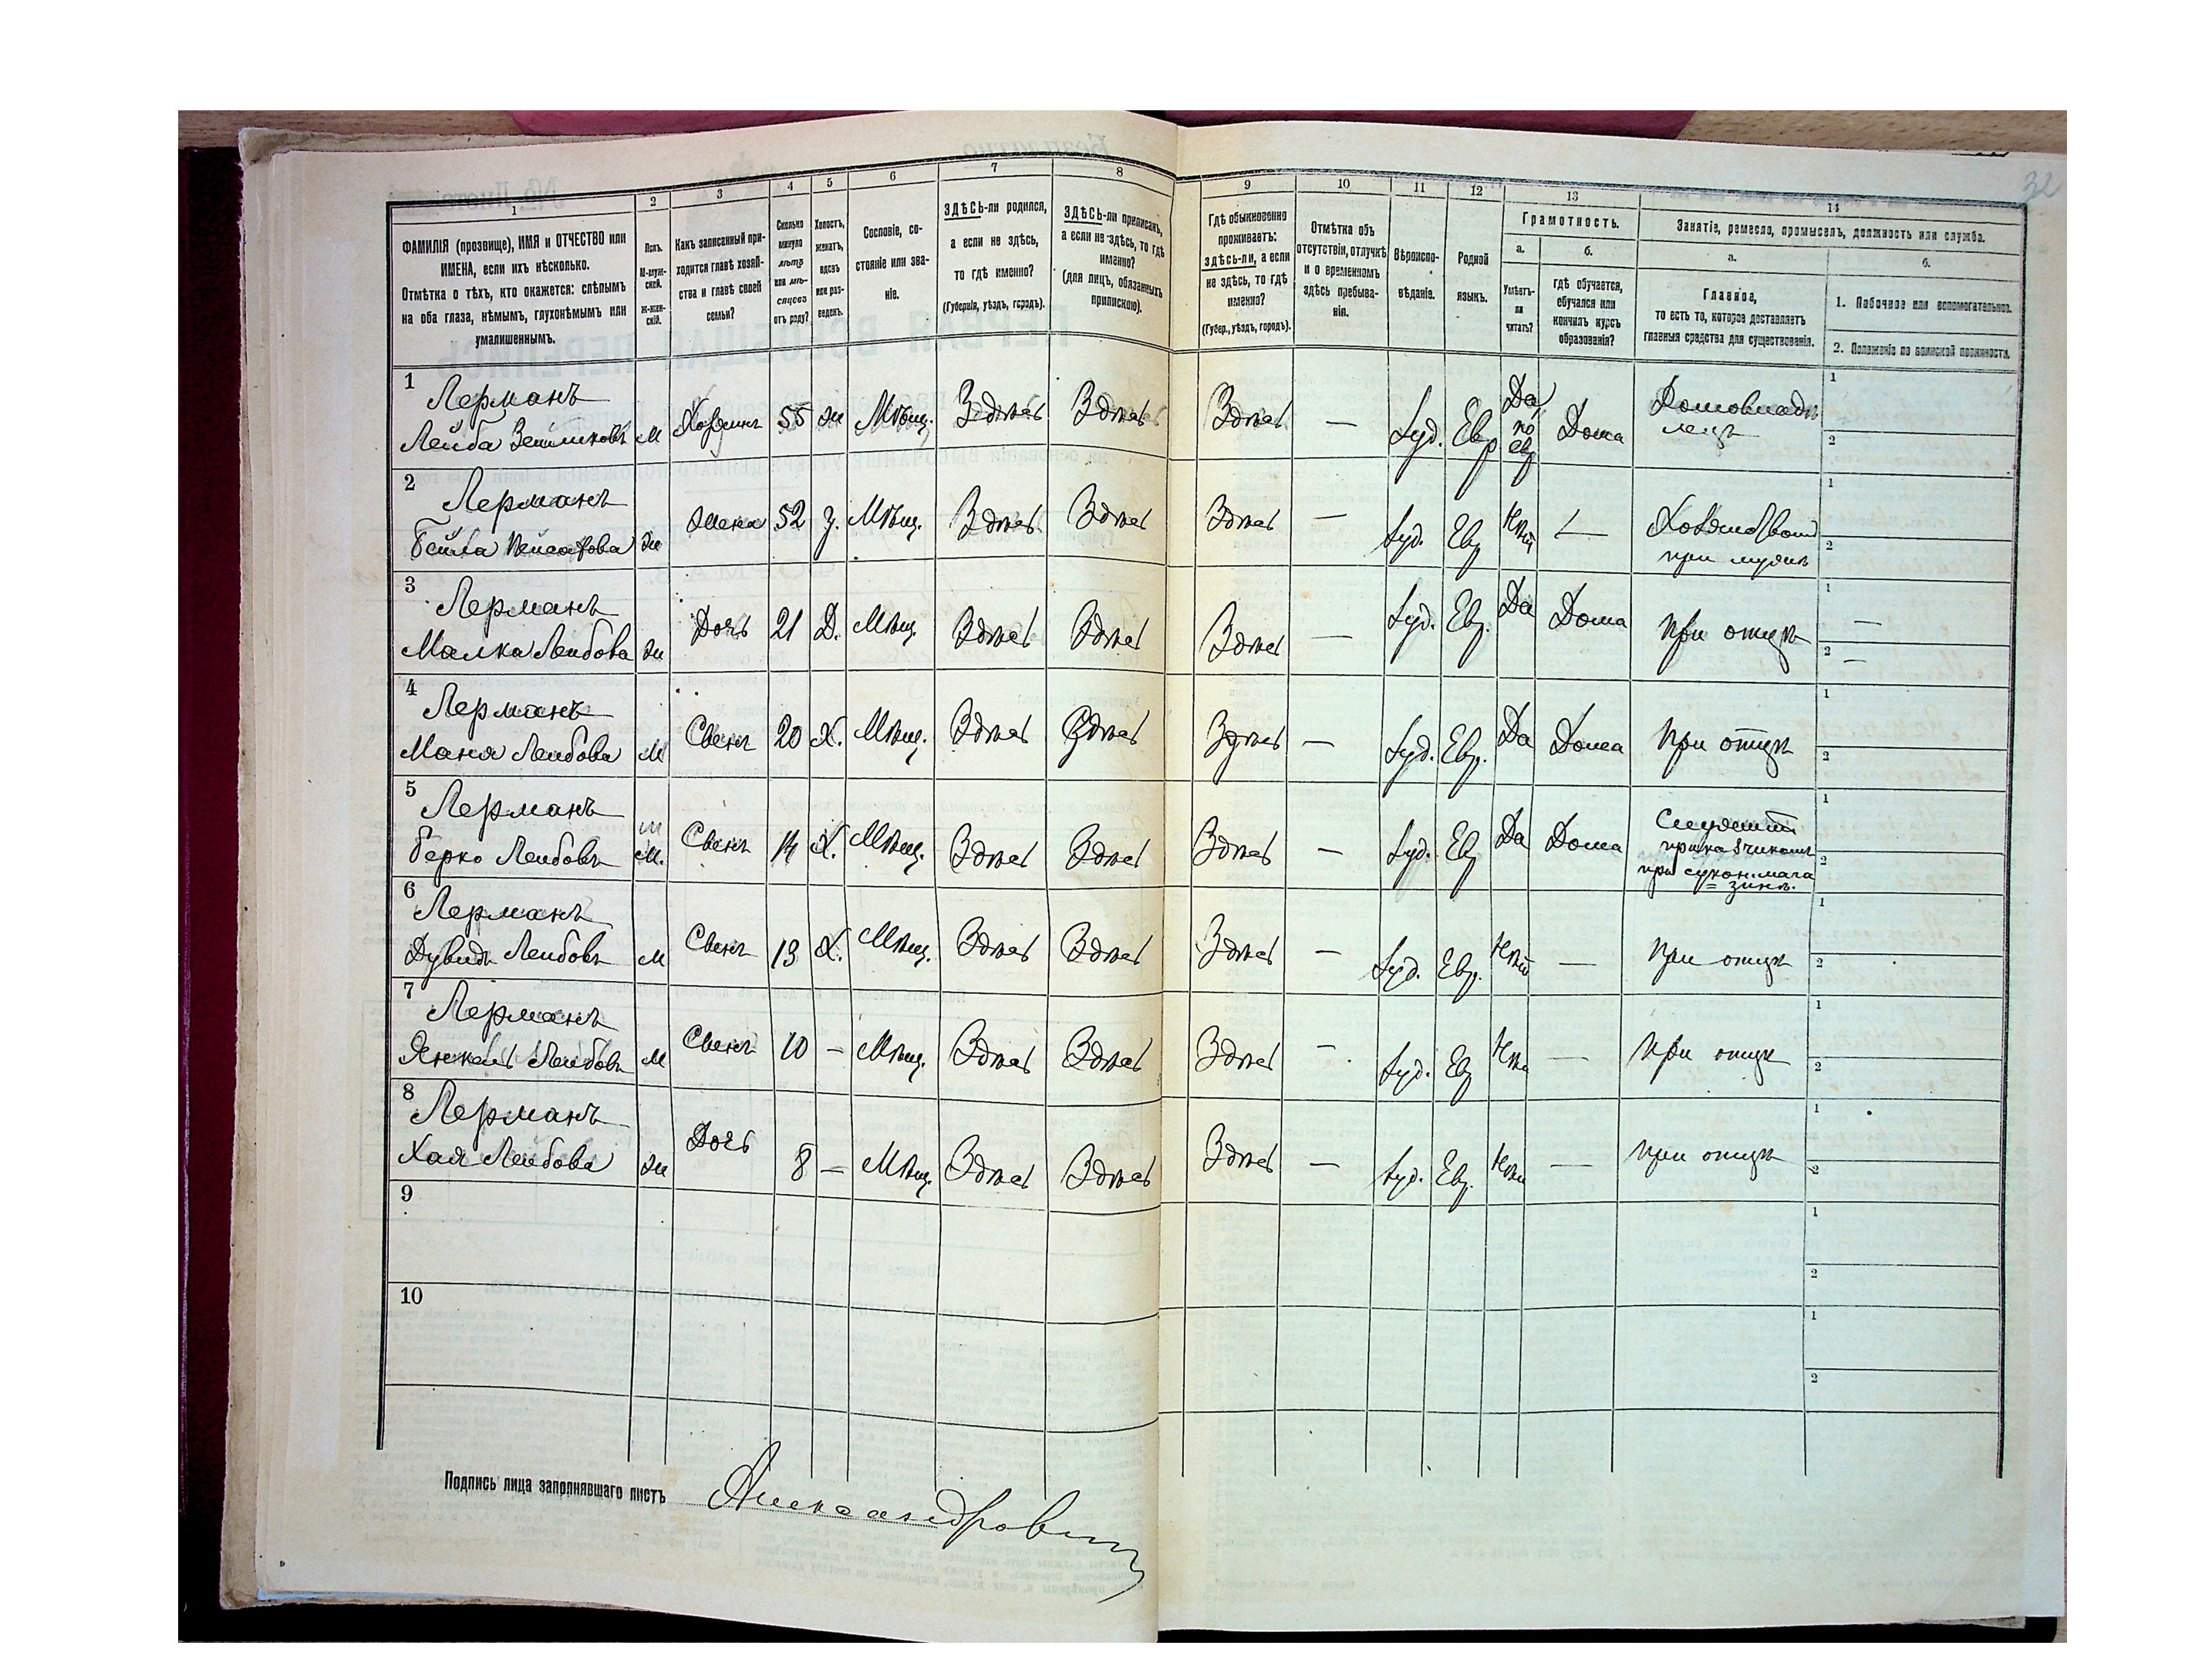 32
1 2 3 4 5 6 7 8 9 10 11 12 13 14
ФАМИЛІЯ (прозвище), ИМЯ и ОТЧЕСТВО или
ИМЕНА, если ихъ нѣсколько.
Отмѣтка о тѣхъ, кто окажется: слѣпымъ
на оба глаза, нѣмымъ, глухонѣмымъ или
умалишеннымъ.
Полъ.
М-муж-
ской.
Ж-жен-
скій.
Какъ записанный при-
ходится главѣ хозяй-
ства и главѣ своей
семьи?
Сколько
минуло
лѣтъ
или мѣ-
сяцевъ
отъ роду?
Холостъ,
женатъ,
вдовъ
или раз-
веденъ.
Сословіе, со-
стояніе или зва-
ніе.
ЗДѢСЬ-ли родился,
а если не здѣсь,
то гдѣ именно?
(Губернія, уѣздъ, городъ).
ЗДѢСЬ-ли приписанъ,
а если не здѣсь, то гдѣ
именно?
(для лицъ, обязанныхъ
припискою).
Гдѣ обыкновенно
проживаетъ:
здѣсь-ли, а если
не здѣсь, то гдѣ
именно?
(Губер., уѣздъ, городъ).
Отмѣтка объ
отсутствіи, отлучкѣ
и о временномъ
здѣсь пребыва-
ніи.
Вѣроиспо-
вѣданіе.
Родной
языкъ.
Грамотность.
а.
Умѣетъ-
ли
читать?
б.
гдѣ обучается,
обучался или
кончилъ курсъ
образованія?
Занятіе, ремесло, промыселъ, должность или служба.
а.
Главное,
то есть то, которое доставляетъ
главныя средства для существованія.
б.
1. Побочное или вспомогательное.
2. Положеніе по воинской повинности.
1
Лерманъ
Лейба М Хозяинъ 55 Ж Мѣщ. Здѣсь Здѣсь Здѣсь — Іуд. Евр Да по евр Дома Домовладѣ
лецъ
1
2
2
Лерманъ
Бейла Ж Жена 52 З. Мѣщ. Здѣсь Здѣсь Здѣсь — Іуд. Евр Нѣтъ —
при мужѣ
1
2
3
Лерманъ
Малка Лейбова Ж Дочь 21 Д. Мѣщ. Здѣсь Здѣсь Здѣсь — Іуд. Евр. Да Дома При отцѣ
1 —
2 —
4
Лерманъ
Маня Лейбова М Сынъ 20 Х. Мѣщ. Здѣсь Здѣсь Здѣсь — Іуд. Евр. Да Дома При отцѣ
1
2
5
Лерманъ
Берко Лейбовъ М. Сынъ 14 Х. Мѣщ. Здѣсь Здѣсь Здѣсь — Іуд. Евр Да Дома Служитъ
приказчикомъ
при сукон. мага
= зинѣ.
1
2
6
Лерманъ
Дувидъ Лейбовъ М Сынъ 13 Х. Мѣщ. Здѣсь Здѣсь Здѣсь — Іуд. Евр. Нѣтъ — При отцѣ
1
2
7
Лерманъ
Янкель Лейбовъ М Сынъ 10 — Мѣщ. Здѣсь Здѣсь Здѣсь — Іуд. Евр Нѣтъ — При отцѣ
1
2
8
Лерманъ
Хая Лейбова Ж Дочь 8 — Мѣщ. Здѣсь Здѣсь Здѣсь — Іуд. Евр. Нѣтъ — При отцѣ
1
2
9
1
2
10
1
2
Подпись лица заполнявшаго листъ Александрович